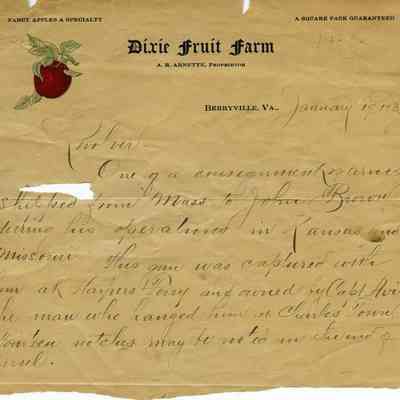 FANCY APPLES A SPECIALTY
A SQUARE PACK GUARANTEED
Dixie Fruit Farm
A. R. ARNETTE, PROPRIETOR
BERRYVILLE, VA., January 19
Revolver.
One of a consignment
shipped from Mass. to John Brown
during his operations in Kansas and
Missouri This gun was captured with
him at Harpers Ferry and owned by Capt Avis
the man who hanged him at Charles Town
notches may be noted in the